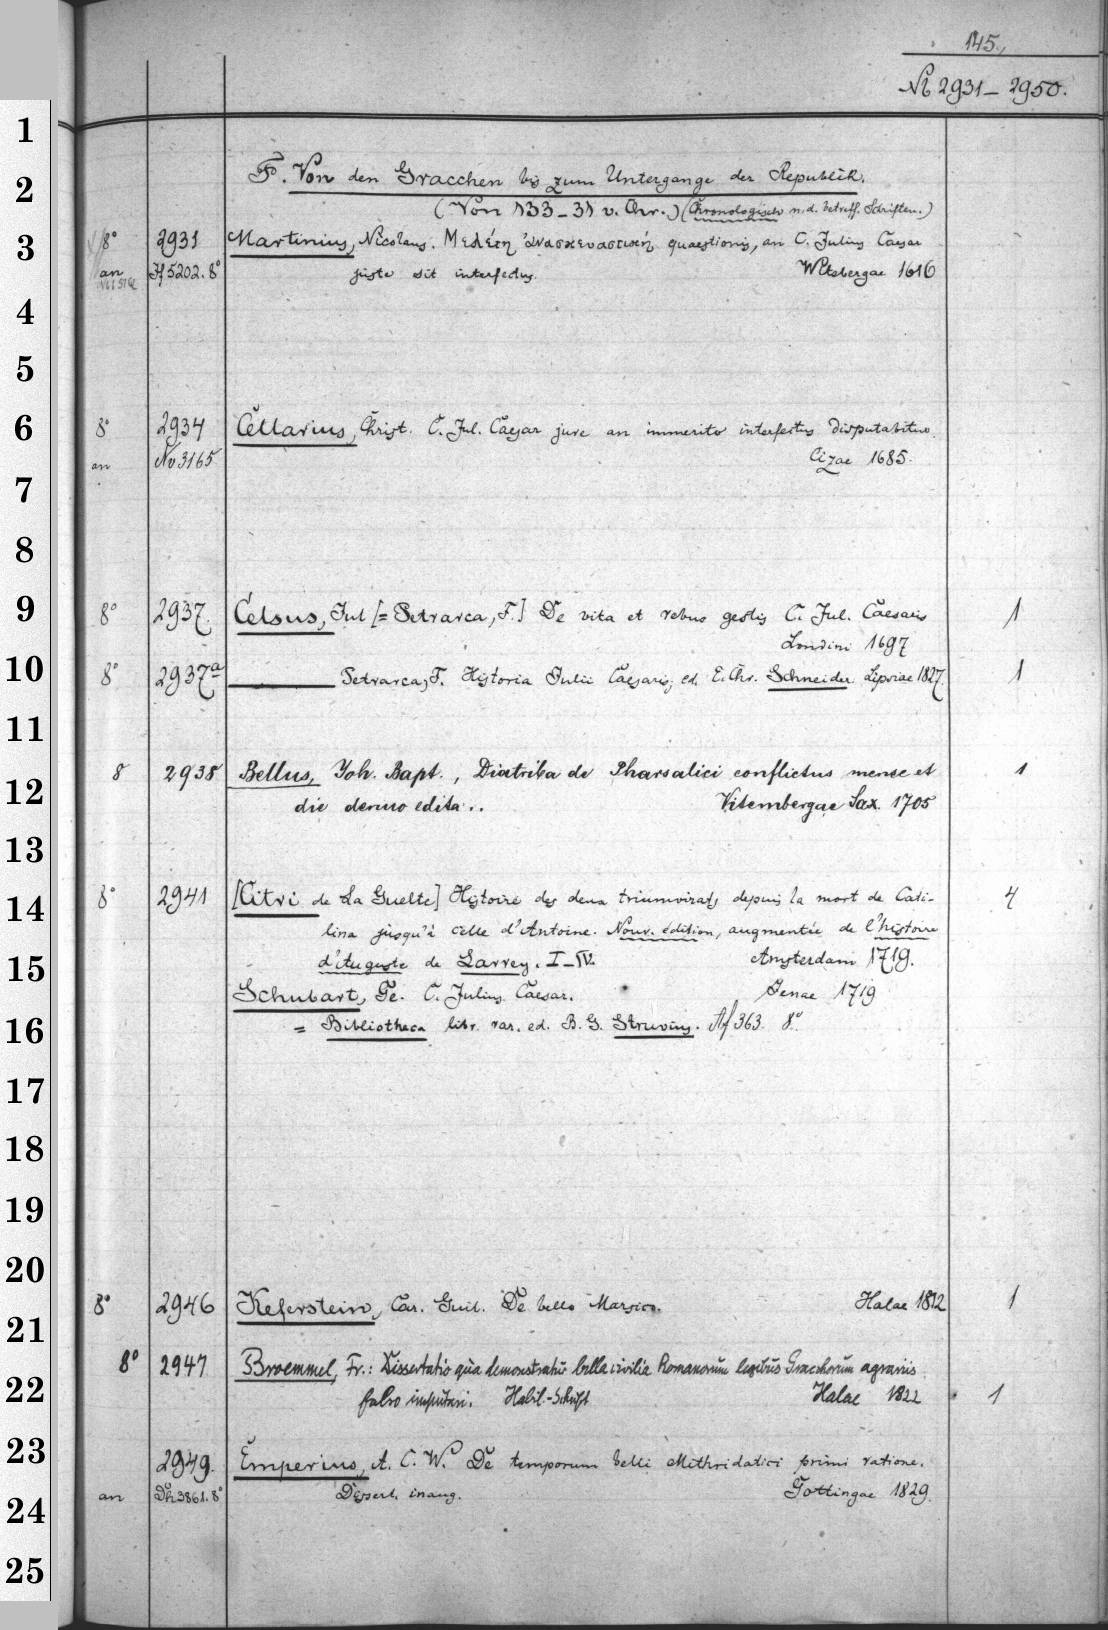 145.
№ 2931 – 2950.
1
2 F. Von den Gracchen bis zum Untergange der Republik.
(Von 133–31 v. Chr.) (Chronologisch n. d. betreff. Schriften.)
3 8° 2931 Martinius, Nicolaus. Μελέτη ἀνασκευαστική quaestionis, an C. Julius Caesar
an If 5202. 8° juste sit interfectus. Witebergae 1616
4
5
6 8° 2934 Cellarius, Christ. C. Jul. Caesar jure an immerito interfectus disputabitur.
an Nv 3165 Cizae 1685.
7
8
9 8° 2937. Celsus, Jul [= Petrarca, F.] De vita et rebus gestis C. Jul. Caesaris 1
Londini 1697
10 8° 2937a ——— Petrarca, F. Historia Julii Caesaris, ed. C. Chr. Schneider. Lipsiae 1827. 1
11
8 2938 Bellus, Joh. Bapt., Diatriba de Pharsalici conflictus mense et 1
12 die denuo edita.. Vitembergae Sax. 1705
13
14 8° 2941 [Citri de La Guette] Histoire des deux triumvirats depuis la mort de Cati- 4
lina jusqu'à celle d'Antoine. Nouv. édition, augmentée de l'histoire
15 d'Auguste de Larrey. I–IV. Amsterdam 1719.
Schubart, Ge. C. Julius Caesar. Jenae 1719
16 = Bibliotheca libr. rar. ed. B. G. Struvius. Af 363. 8°.
17
18
19
20
8° 2946 Keferstein, Car. Guil. De bello Marsico. Halae 1812 1
21
8° 2947 Broemmel, Fr.: Dissertatio qua demonstratur bella civilia Romanorum legibus Gracchorum agrariis
22 falso imputari. Habil.-Schrift Halae 1822 1
23 2949. Emperius, A. C. W. De temporum belli Mithridatici primi ratione.
an Dh 3861. 8° Dissert. inaug. Gottingae 1829.
24
25